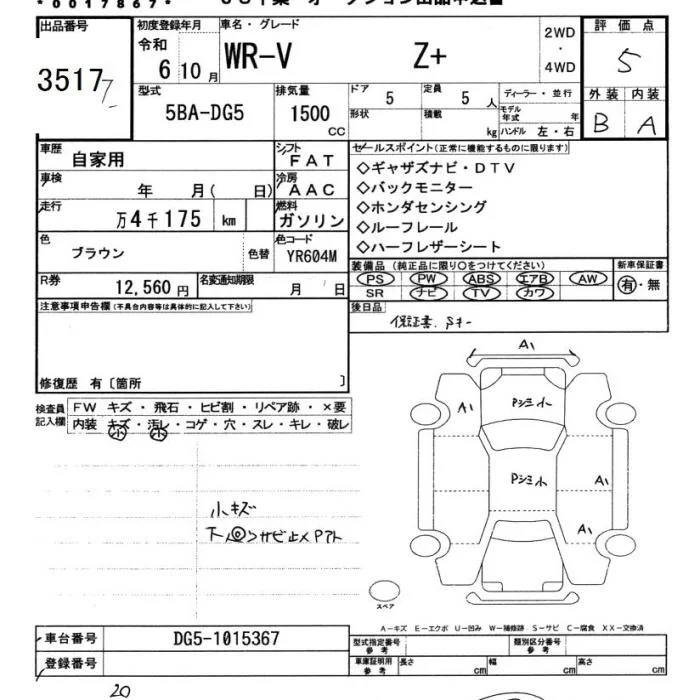 *0017867*
出品番号
35177
初度登録年月
令和
6年10月
車名・グレード
WR-V Z+
2WD
・
4WD
評価点
5
外装 内装
B A
型式
5BA-DG5
排気量
1500
CC
ドア
5
形状
定員
5人
積載
kg
ディーラー・並行
モデル年式 年
ハンドル 左・右
車歴
自家用
シフト
FAT
車検
年 月( 日)
冷房
AAC
走行
万4千175 km
燃料
ガソリン
色
ブラウン
色替
色コード
YR604M
R券
12,560円
名変通知期限
月 日
セールスポイント(正常に機能するものに限ります)
◇ギャザズナビ・DTV
◇バックモニター
◇ホンダセンシング
◇ルーフレール
◇ハーフレザーシート
装備品(純正品に限り○をつけてください)
PS PW ABS エアB AW
SR ナビ TV カワ
新車保証書
有・無
後日品
保証書、Sキー
注意事項申告欄(不具合内容等は具体的に記入して下さい)
修復歴 有〔箇所 〕
検査員記入欄
FW キズ・飛石・ヒビ割・リペア跡・×要
内装 キズ・汚レ・コゲ・穴・スレ・キレ・破レ
小 小
小キズ
A1
A1
Pシミ小
Pシミ小
A1
A1
スペア
A-キズ E-エクボ U-凹み W-補修跡 S-サビ C-腐食 XX-交換済
車台番号
DG5-1015367
登録番号
型式指定番号
参考
類別区分番号
参考
車庫証明用
参考
長さ cm
幅 cm
高さ cm
20